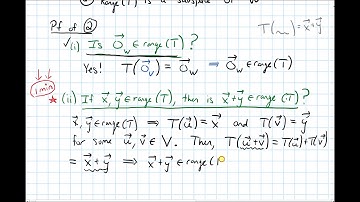 ② Range(T) is a subspace of W
Pf of ②
T(~) = x⃗+y⃗
✓(i) Is O⃗_w ∈ range(T)?
Yes! T(O⃗_v) = O⃗_w ⟹ O⃗_w ∈ range(T)
1 min
* (ii) If x⃗, y⃗ ∈ range(T), then is x⃗+y⃗ ∈ range(T)?
x⃗, y⃗ ∈ range(T) ⟹ T(u⃗) = x⃗ and T(v⃗) = y⃗
for some u⃗, v⃗ ∈ V. Then, T(u⃗+v⃗) = T(u⃗)+T(v⃗)
= x⃗+y⃗ ⟹ x⃗+y⃗ ∈ range(